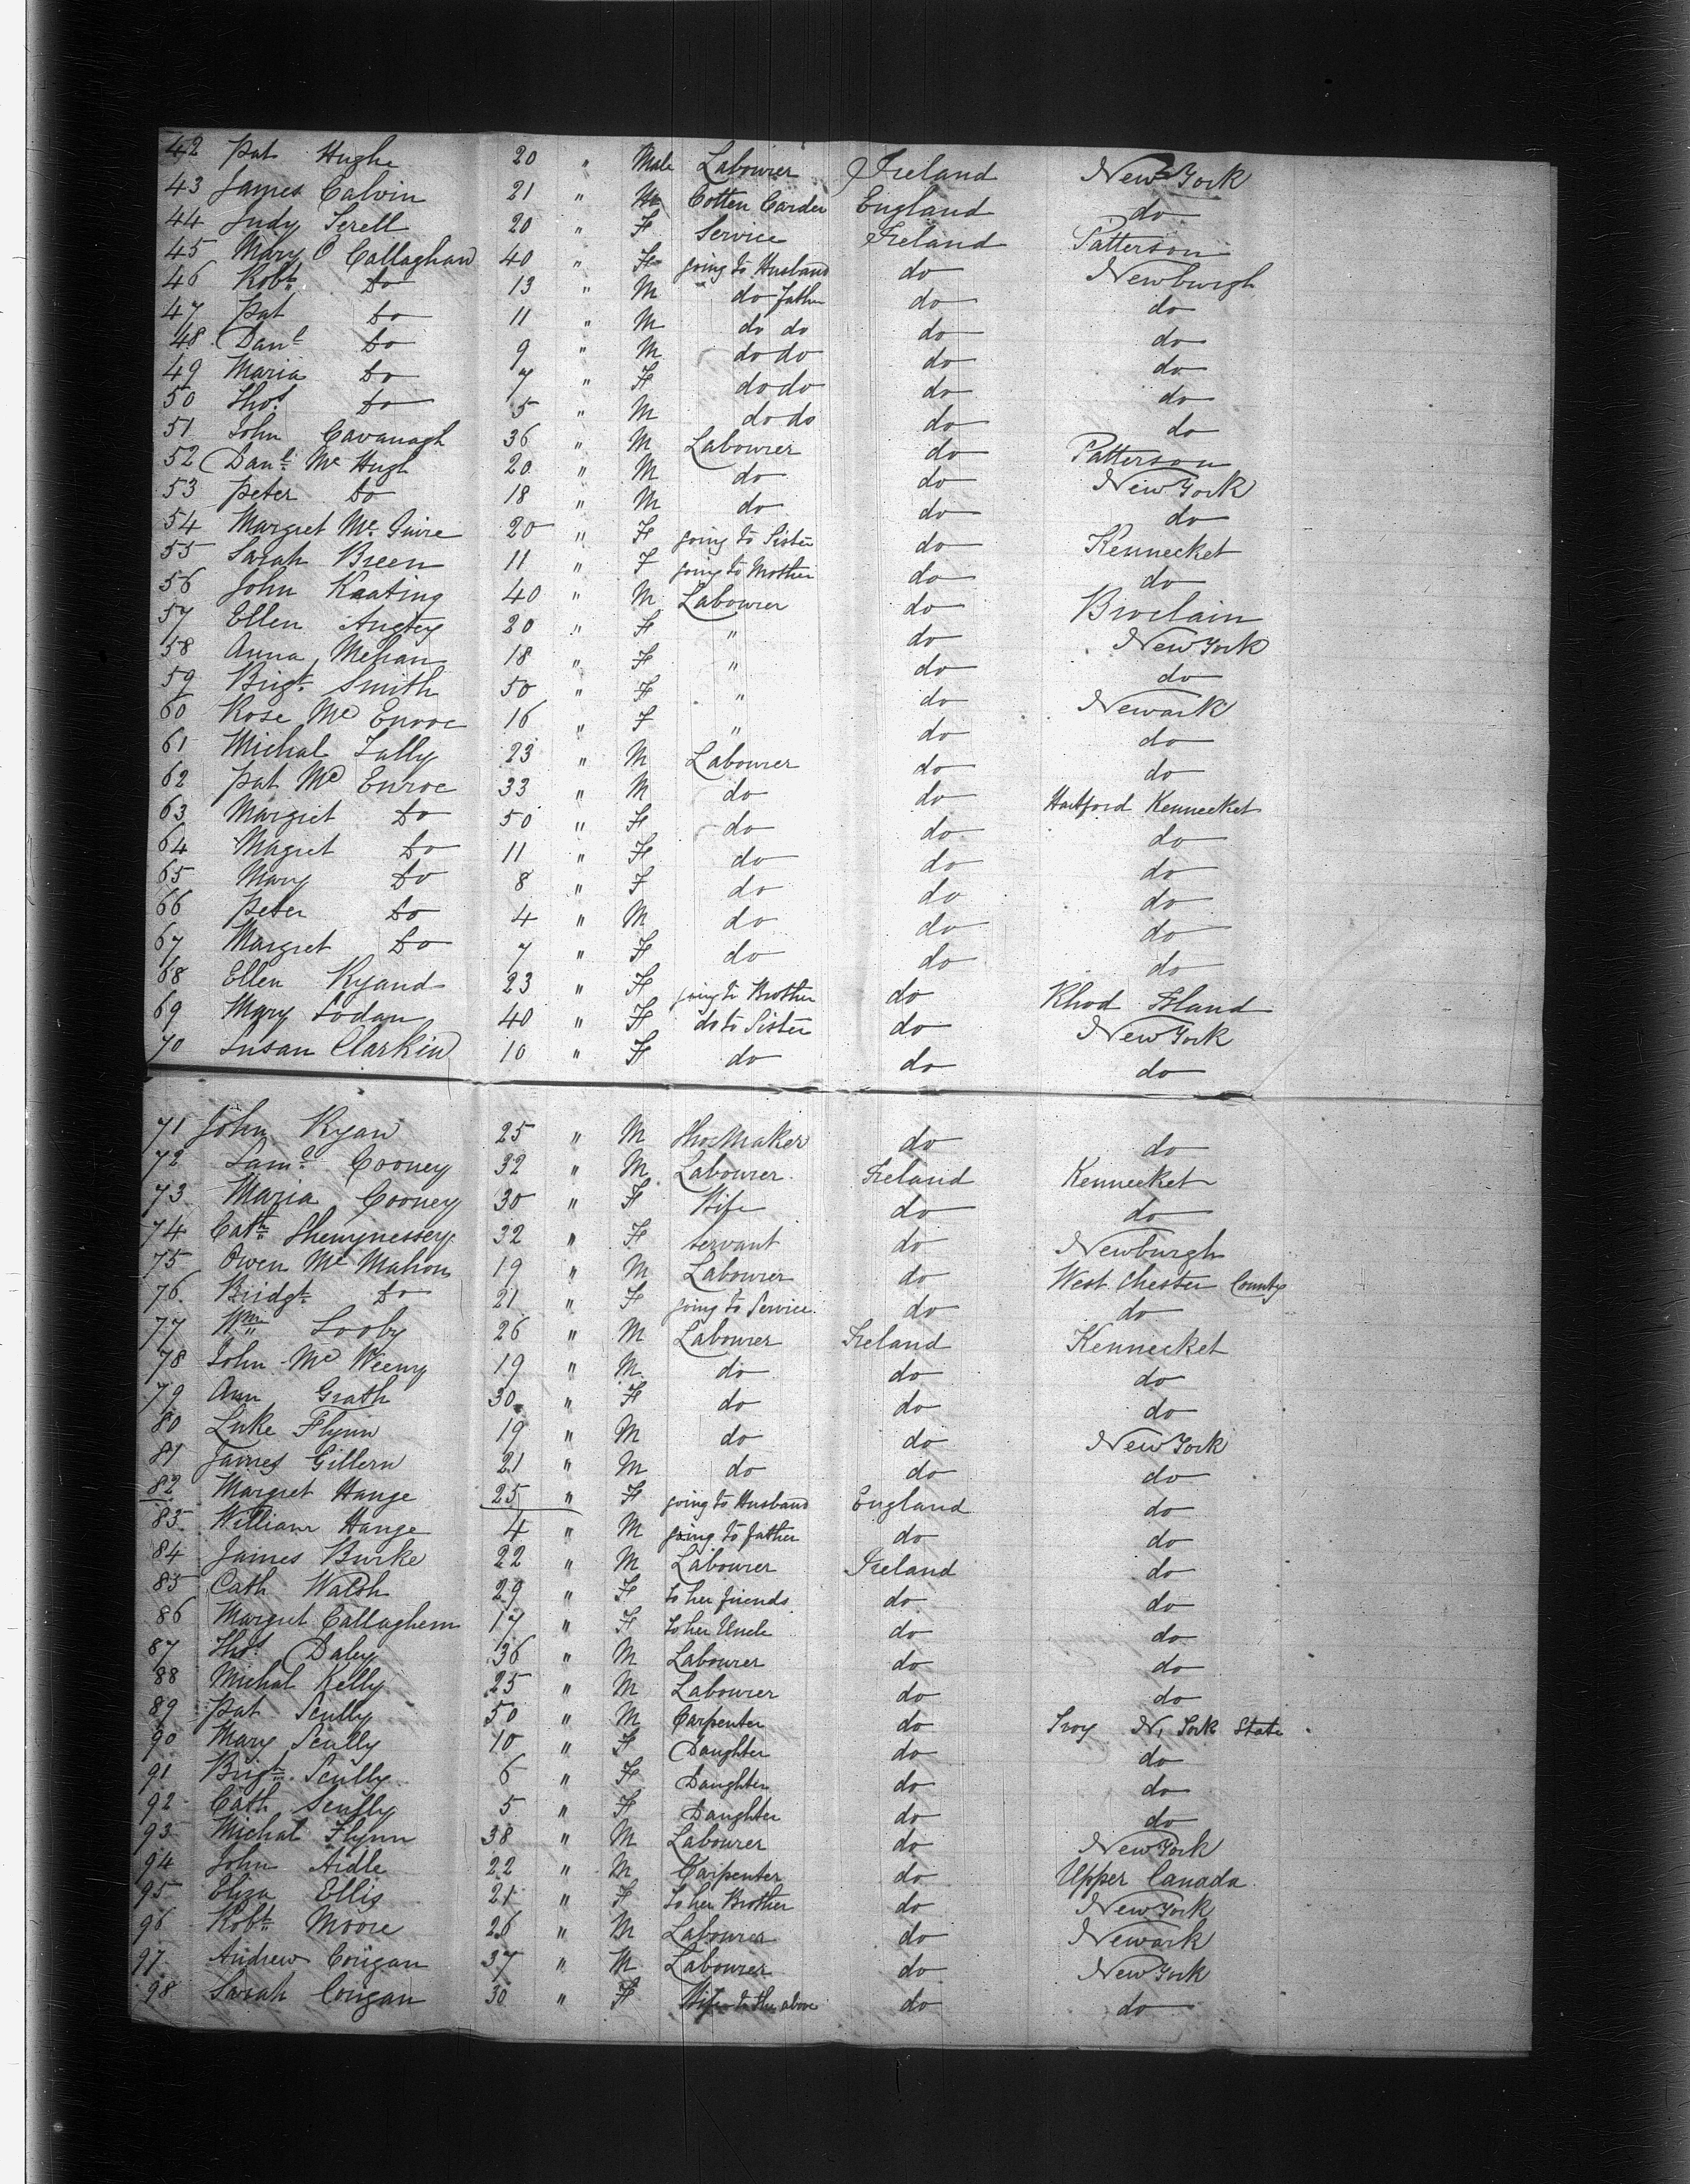 42 Pat Hughe 20 " Male Labourer Ireland New York
43 James Calvin 21 " M Cotten Carder England do
44 Judy Serell 20 " F Service Ireland Patterson
45 Mary O Callaghan 40 " F going to Husband do Newburgh
46 Robt Do 13 " M " do Father do do
47 Pat Do 11 " M do do do do
48 Danl Do 9 " M do do do do
49 Maria Do 7 " F do do do do
50 Thos Do 5 " M do do do do
51 John Cavanagh 36 " M Labourer do Patterson
52 Danl Mc Hugh 20 " M do do New York
53 Peter Do 18 " M do do do
54 Margret Mc Guire 20 " F going to Sister do Kennecket
55 Sarah Breen 11 " F going to Mother do do
56 John Keating 40 " M Labourer do Broclain
57 Ellen 20 " F " do New York
58 Anna Mehan 18 " F " do do
59 Brigt Smith 50 " F " do Newark
60 Rose Mc Enroe 16 " F " do do
61 Michal Lally 23 " M Labourer do do
62 Pat Mc Enroe 33 " M do do Hartford Kennecket
63 Margret Do 50 " F do do do
64 Magret Do 11 " F do do do
65 Mary Do 8 " F do do do
66 Peter Do 4 " M do do do
67 Margret Do 7 " F do do do
68 Ellen Ryand 23 " F going to Brother do Rhod Island
69 Mary Sodan 40 " F do to Sister do New York
70 Susan Clarkin 10 " F do do do
71 John Ryan 25 " M Shoemaker do do
72 Saml Cooney 32 " M Labourer Ireland Kennecket
73 Maria Cooney 30 " F Wife do do
74 Cath Shenynessey 32 " F Servant do Newburgh
75 Owen Mc Mahon 19 " M Labourer do West Chester County
76 Bridgt Do 21 " F going to Service do do
77 Wm Looby 26 " M Labourer Ireland Kennecket
78 John Mc Weeny 19 " M do do do
79 Ann Grath 30 " F do do do
80 Luke Flynn 19 " M do do New York
81 James Gillern 21 " M do do do
82 Margret Hange 25 " F going to Husband England do
83 William Hange 4 " M going to father do do
84 James Burke 22 " M Labourer Ireland do
85 Cath Walsh 29 " F to her friends do do
86 Margret Callaghem 17 " F to her Uncle do do
87 Thos Daley 36 " M Labourer do do
88 Michal Kelly 25 " M Labourer do do
89 Pat Scully 50 " M Carpenter do Troy N, York State
90 Mary Scully 10 " F Daughter do do
91 Brigt Scully 6 " F Daughter do do
92 Cath Scully 5 " F Daughter do do
93 Michal Flynn 38 " M Labourer do New York
94 John Aidle 22 " M Carpenter do Upper Canada
95 Eliza Ellis 21 " F to her Brother do New York
96 Robt Moore 26 " M Labourer do Newark
97 Andrew Corigan 37 " M Labourer do New York
98 Sarah Corigan 30 " F Wife to the above do do